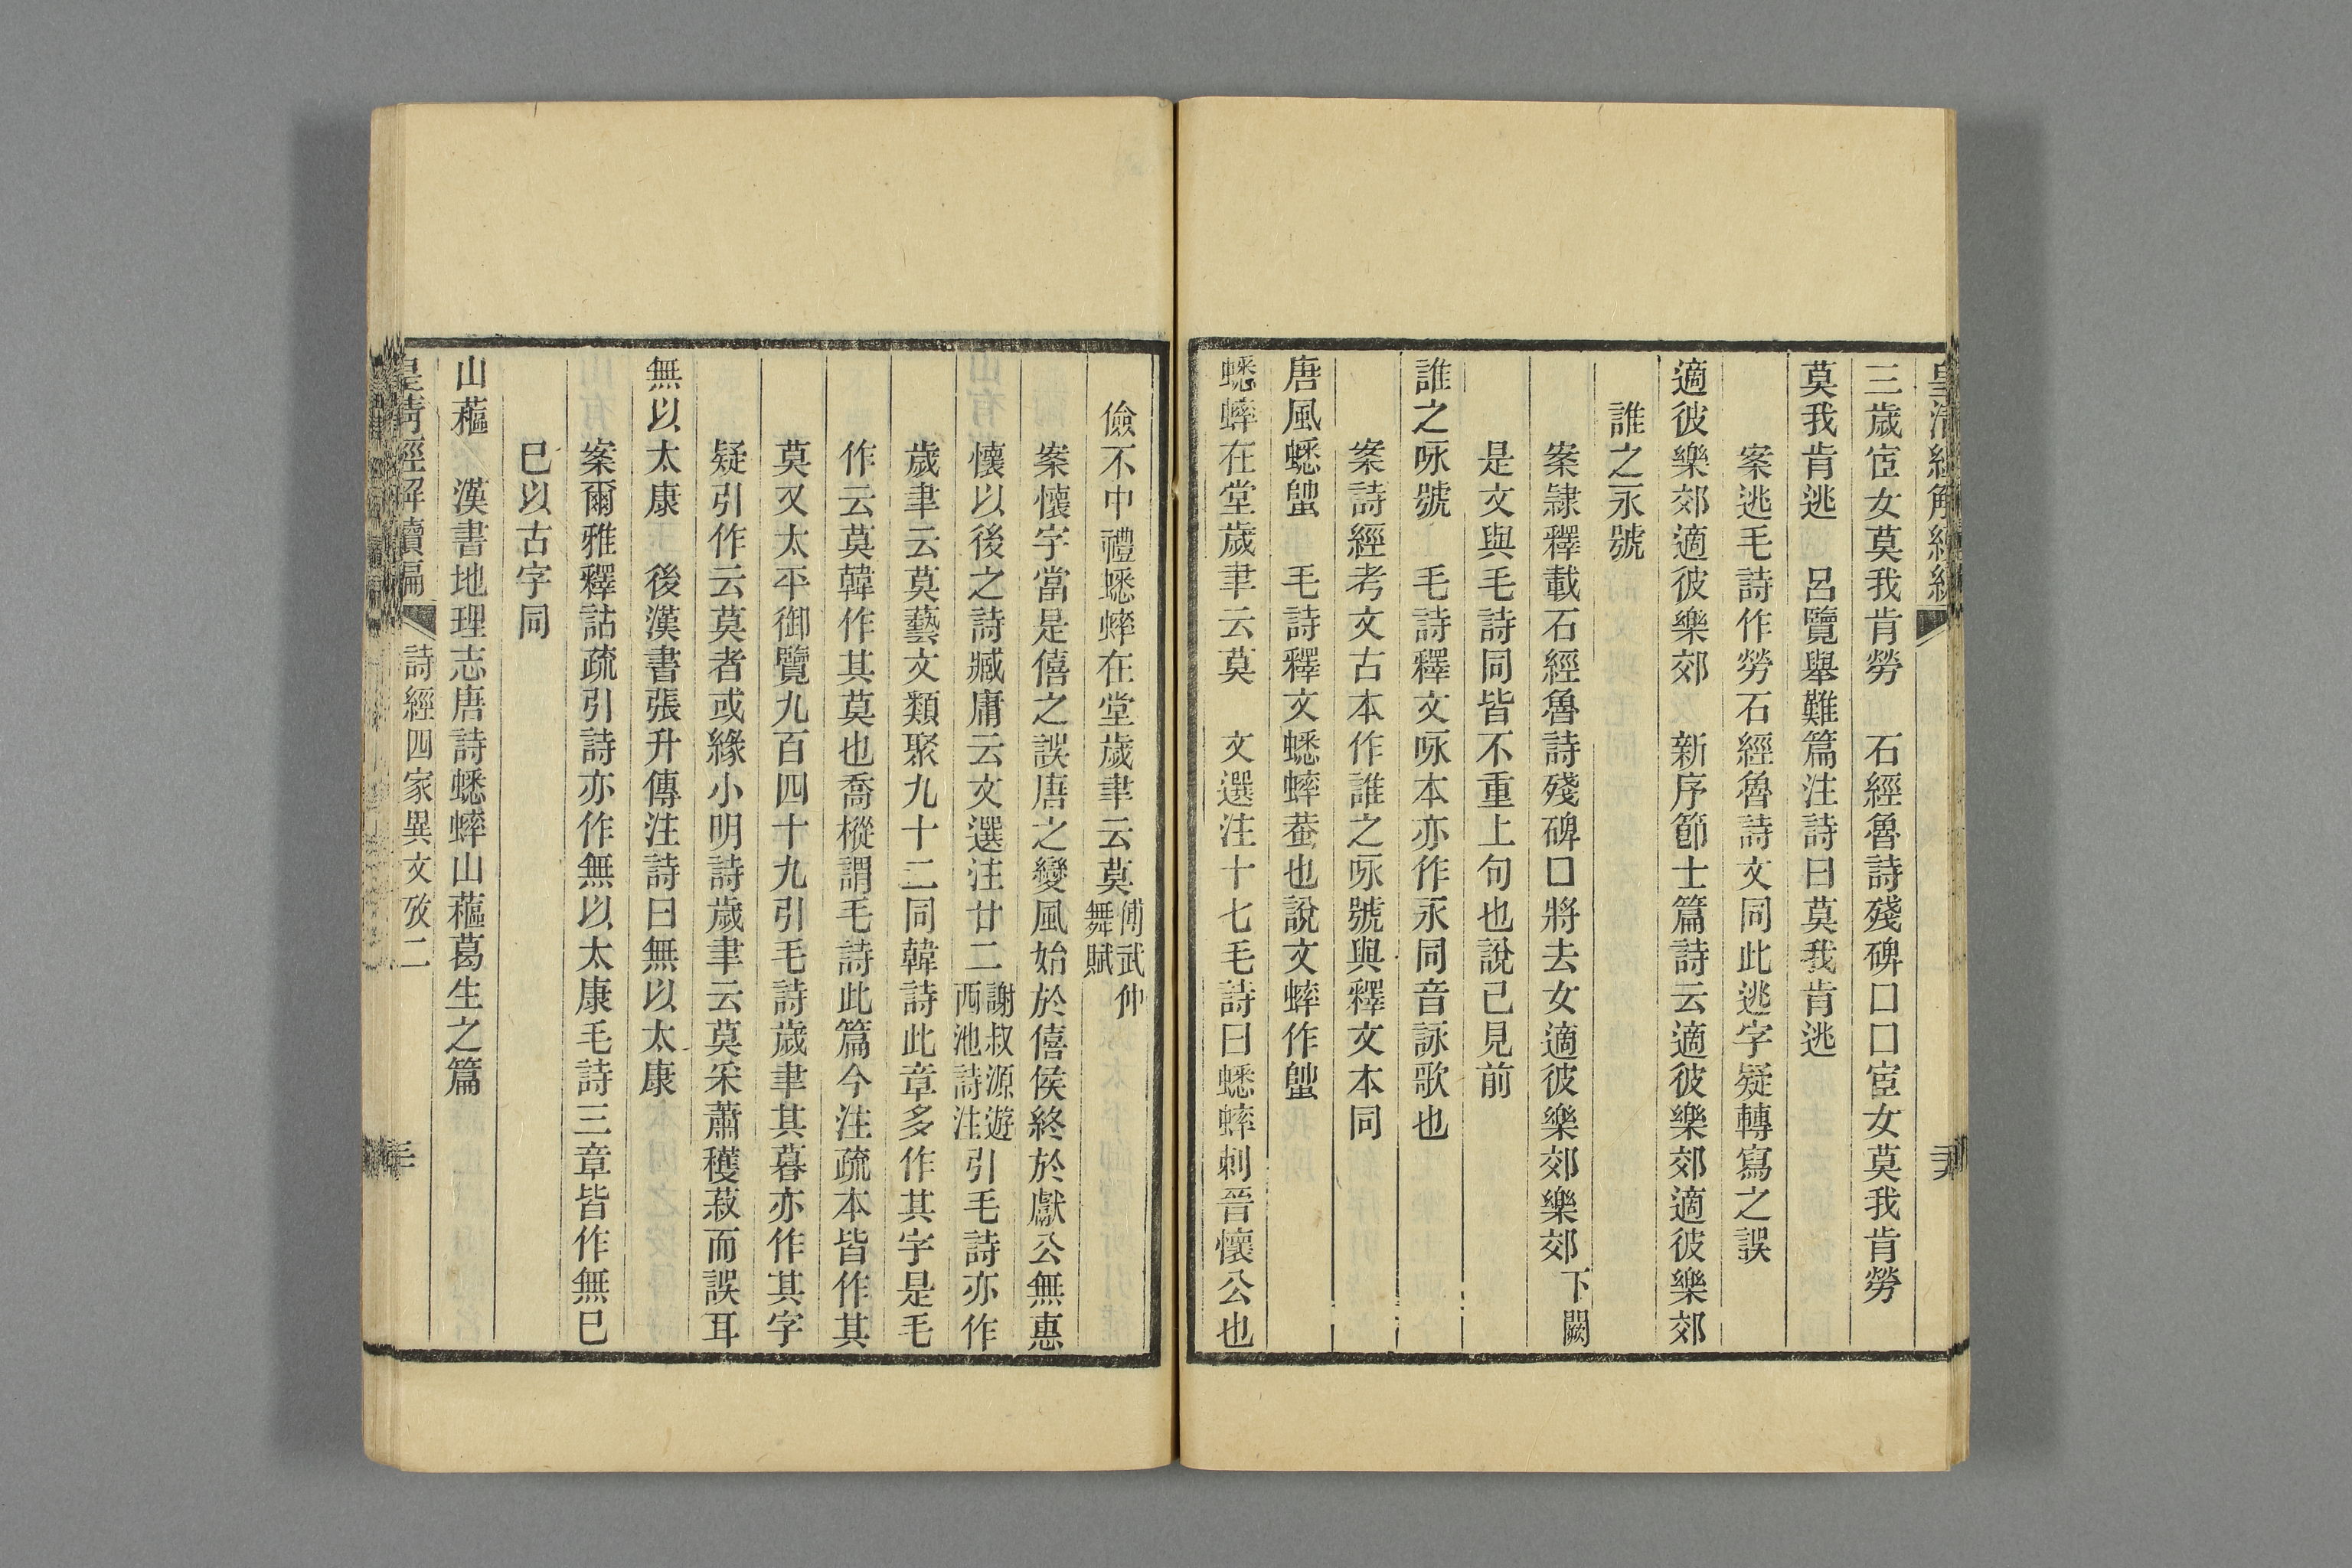 三歲宦女莫我肯勞　石經魯詩殘碑口口宦女莫我肯勞
莫我肯逃　呂覽舉難篇注詩曰莫我肯逃
案逃毛詩作勞石經魯詩文同此逃字疑轉寫之誤
適彼樂郊適彼樂郊　新序節士篇詩云適彼樂郊適彼樂郊
誰之永號
案隷釋載石經魯詩殘碑口將去女適彼樂郊樂郊下闕
是文與毛詩同皆不重上句也說已見前
誰之咏號　毛詩釋文咏本亦作永同音詠歌也
案詩經考文古本作誰之咏號與釋文本同
唐風蟋䗐　毛詩釋文蟋蟀蛬也說文蟀作䗐
蟋蟀在堂歲聿云莫　文選注十七毛詩曰蟋蟀刺晉懷公也
儉不中禮蟋蟀在堂歲聿云莫傅武仲舞賦
案懷字當是僖之誤唐之變風始於僖侯終於獻公無惠
懷以後之詩臧庸云文選注廿二謝叔源遊西池詩注引毛詩亦作
歲聿云莫藝文類聚九十二同韓詩此章多作其字是毛
作云莫韓作其莫也喬樅謂毛詩此篇今注疏本皆作其
莫又太平御覽九百四十九引毛詩歲聿其暮亦作其字
疑引作云莫者或緣小明詩歲聿云莫采蕭穫菽而誤耳
無以太康　後漢書張升傳注詩曰無以太康
案爾雅釋詁疏引詩亦作無以太康毛詩三章皆作無已
已以古字同
山蓲　漢書地理志唐詩蟋蟀山蓲葛生之篇
皇清經解續編　詩經四家異文攷二